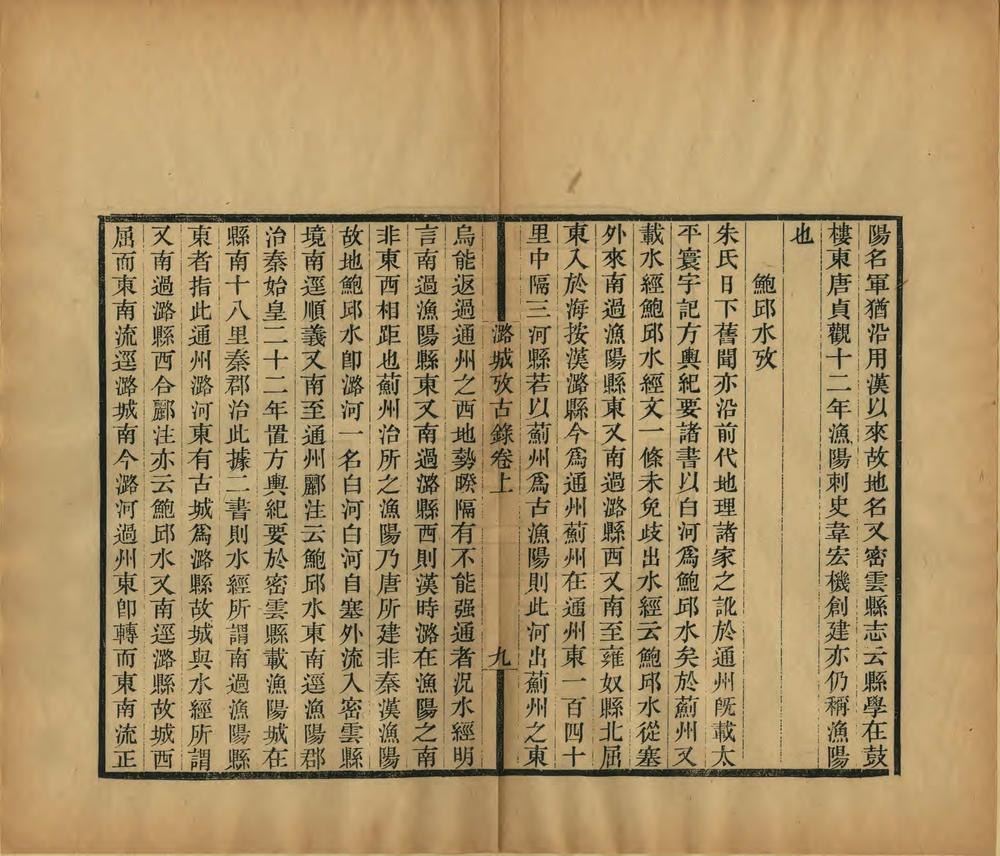 陽名軍猶沿用漢以來故地名又密雲縣志云縣學在鼓
樓東唐貞觀十二年漁陽刺史韋宏機創建亦仍稱漁陽
也
鮑邱水攷
朱氏日下舊聞亦沿前代地理諸家之訛於通州旣載太
平寰宇記方輿紀要諸書以白河爲鮑邱水矣於薊州又
載水經鮑邱水經文一條未免歧出水經云鮑邱水從塞
外來南過漁陽縣東又南過潞縣西又南至雍奴縣北屈
東入於海按漢潞縣今爲通州薊州在通州東一百四十
里中隔三河縣若以薊州爲古漁陽則此河出薊州之東
潞城攷古錄卷上
九
烏能返過通州之西地勢暌隔有不能强通者況水經明
言南過漁陽縣東又南過潞縣西則漢時潞在漁陽之南
非東西相距也薊州治所之漁陽乃唐所建非秦漢漁陽
故地鮑邱水卽潞河一名白河白河自塞外流入密雲縣
境南逕順義又南至通州酈注云鮑邱水東南逕漁陽郡
治秦始皇二十二年置方輿紀要於密雲縣載漁陽城在
縣南十八里秦郡治此據二書則水經所謂南過漁陽縣
東者指此通州潞河東有古城爲潞縣故城與水經所謂
又南過潞縣西合酈注亦云鮑邱水又南逕潞縣故城西
屈而東南流逕潞城南今潞河過州東卽轉而東南流正